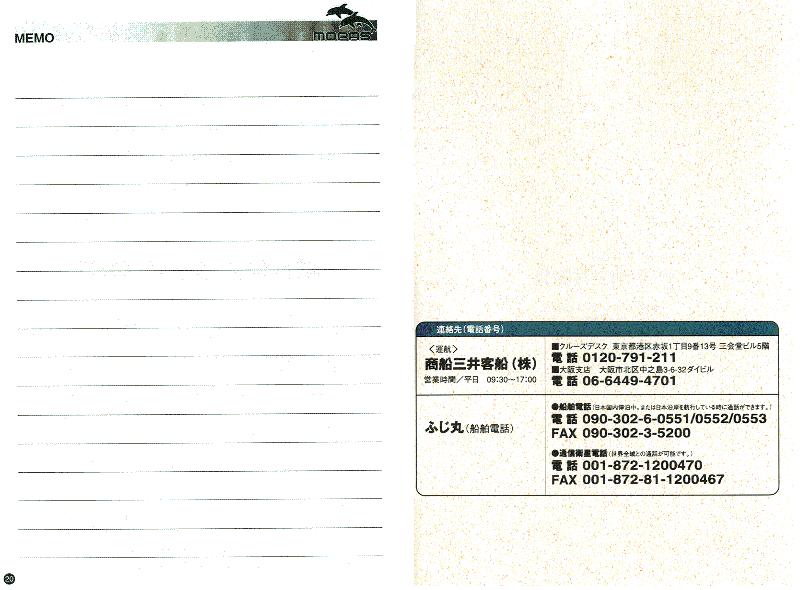 MEMO
moegs
20
連絡先(電話番号)
〈運航〉
商船三井客船(株)
営業時間/平日 09:30〜17:00
■クルーズデスク 東京都港区赤坂1丁目9番13号 三会堂ビル5階
電話 0120-791-211
■大阪支店 大阪市北区中之島3-6-32ダイビル
電話 06-6449-4701
ふじ丸(船舶電話)
●船舶電話(日本国内停泊中、または日本沿岸を航行している時に通話ができます。)
電話 090-302-6-0551/0552/0553
FAX 090-302-3-5200
●通信衛星電話(世界全域との通話が可能です。)
電話 001-872-1200470
FAX 001-872-81-1200467